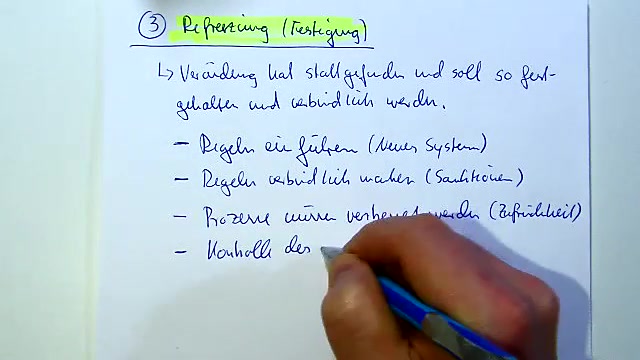 ③ Refreezing (Festigung)
↳ Veränderung hat stattgefunden und soll so fest-
gehalten und verbindlich werden.
- Regeln einführen (Neues System)
- Regeln verbindlich machen (Sanktionen)
- Prozesse müssen verbessert werden (Zufriedenheit)
- Kontrolle des